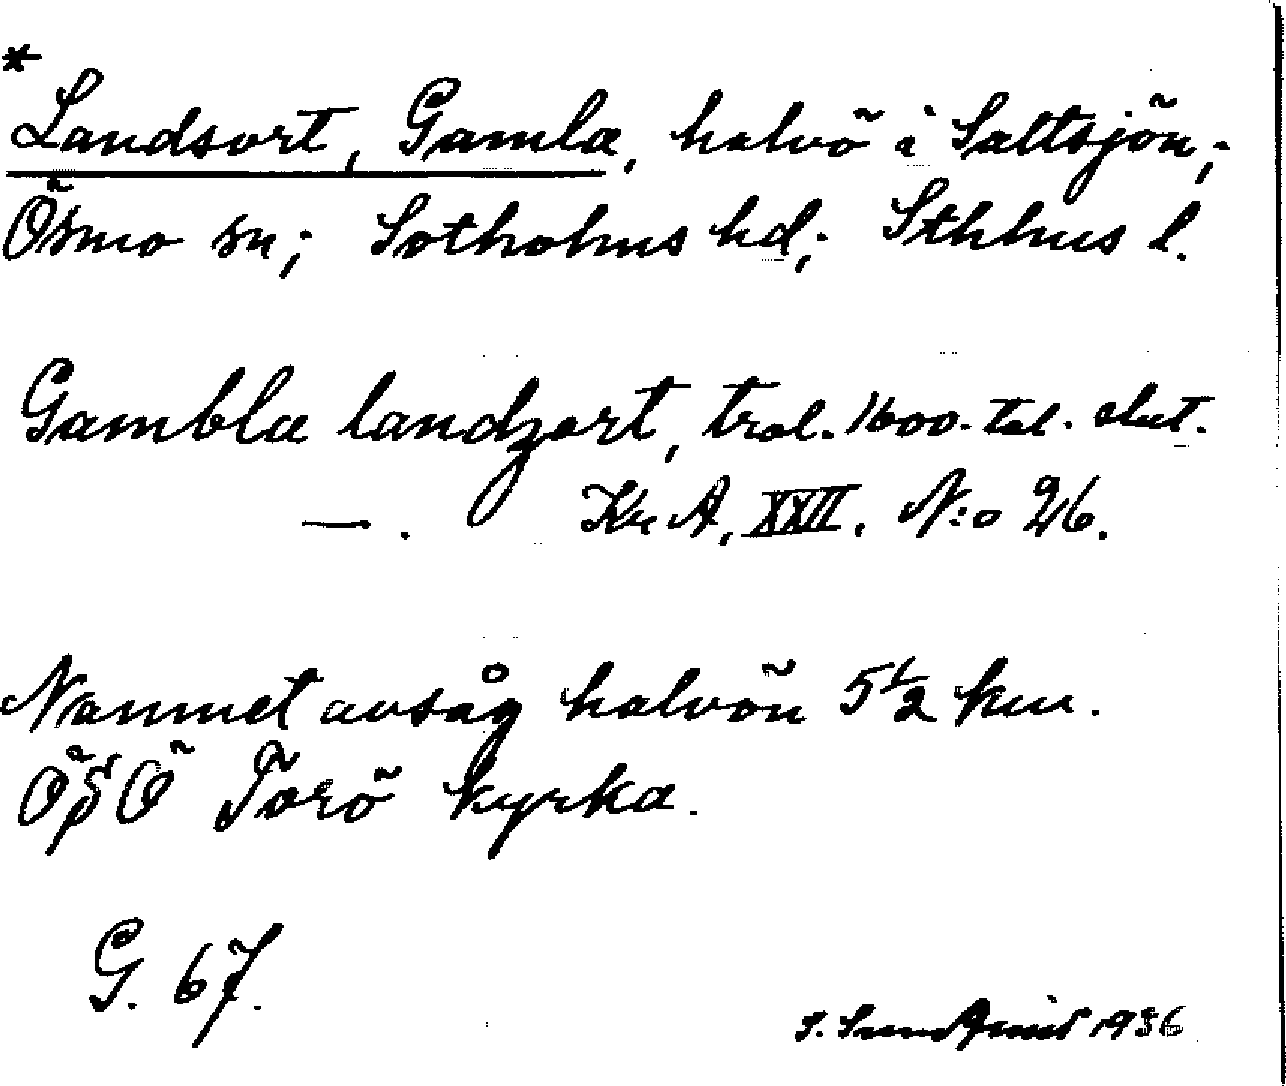 *
Landsort, Gamla, halvö i Saltsjön;
Ösmo sn; Sotholms hd; Sthlms l.
Gambla landzort, trol. 1600-tal. slut.
—. Kr. A, XXII. N:o 26.
Namnet avsåg halvön 5 1/2 km.
ÖSÖ Torö kyrka.
G. 67.
S. Sundqvist 1936